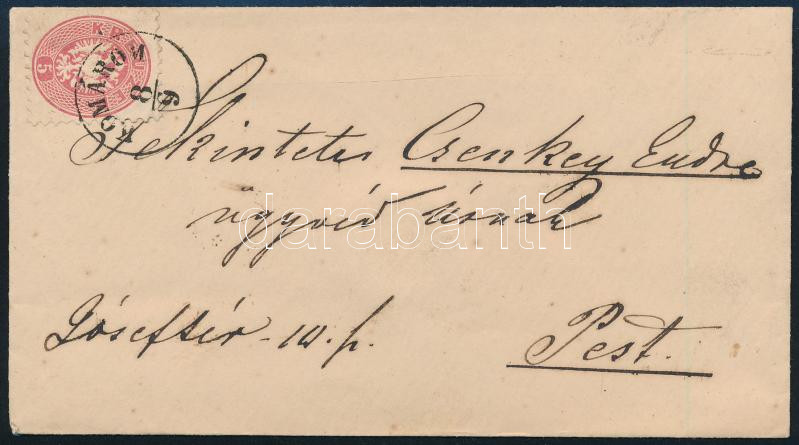 5
KOMÁROM
8/9
Tekintetes Csenkey Endre
ügyvéd Úrnak
darabanth
Jósefstér 10. sz.
Pest.